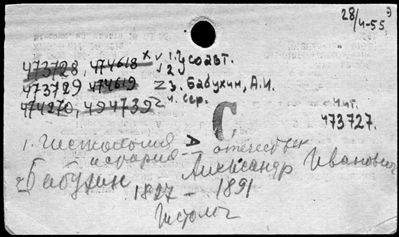 28/4-55 э
473728, 474618 x v 1. Усоавт.
v 2.
473729 474619 z 3. Бабухин, А.И.
474270, 494739 z 4. сер.
С
Чит.
473727.
1. Гистология
история — отечествен
2 Бабухин Александр Иванович
1827 – 1891
Гистолог